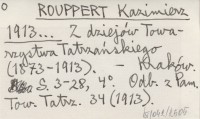 ROUPPERT Kazimierz
1913... Z dziejów Towa-
rzystwa Tatrzańskiego
(1873-1913). - Kraków.
S. 3-28, 4°. Odb. z Pam.
Tow. Tatrz. 34 (1913).